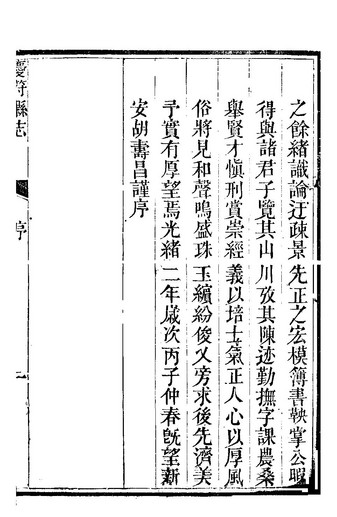 之餘緒識論迂疎景先正之宏模簿書鞅掌公暇
得與諸君子覽其山川攷其陳迹勤撫字課農桑
舉賢才愼刑賞崇經義以培士氣正人心以厚風
俗將見和聲鳴盛珠玉繽紛俊乂旁求後先濟美
予實有厚望焉光緒二年歲次丙子仲春旣望新
安胡壽昌謹序
慶符縣志
序
二